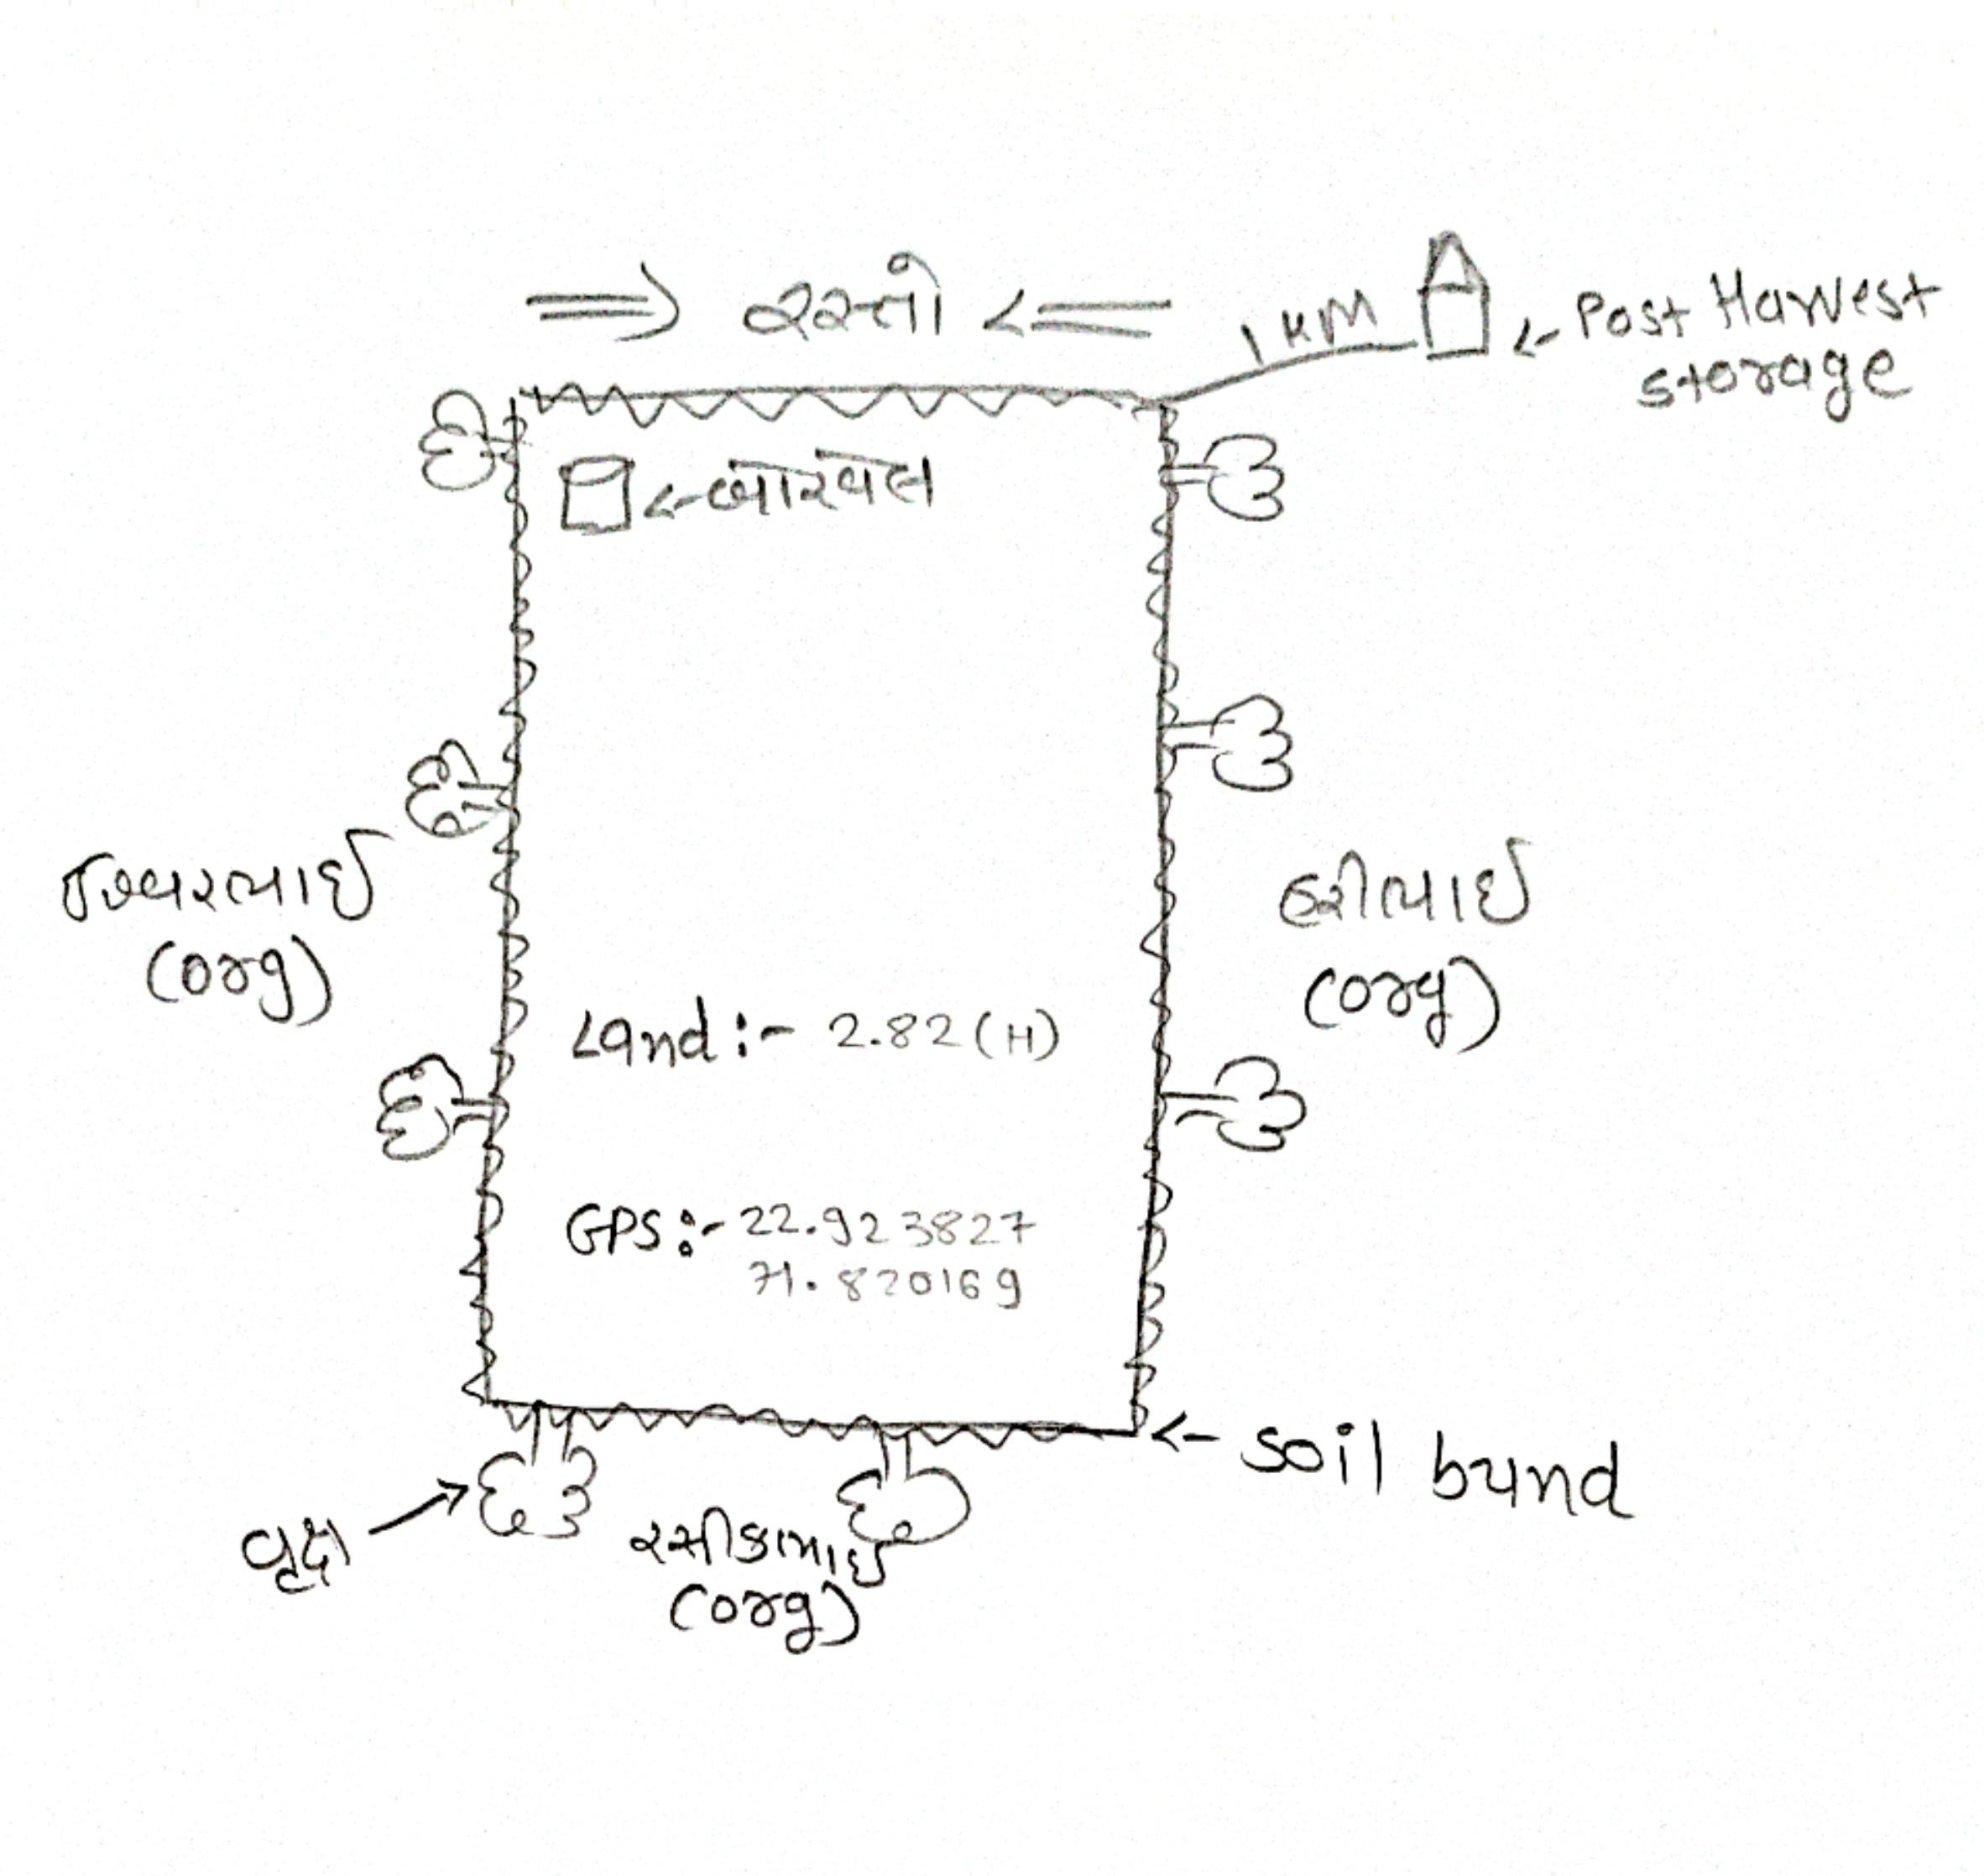 ⇒ રસ્તો <=
1 KM
<- Post Harvest
storage
<- બોરવેલ
(org)
હરીભાઈ
(org)
Land :- 2.82 (H)
GPS :- 22.923827
71.820169
<- soil bund
વૃક્ષ →
રસીકભાઈ
(org)